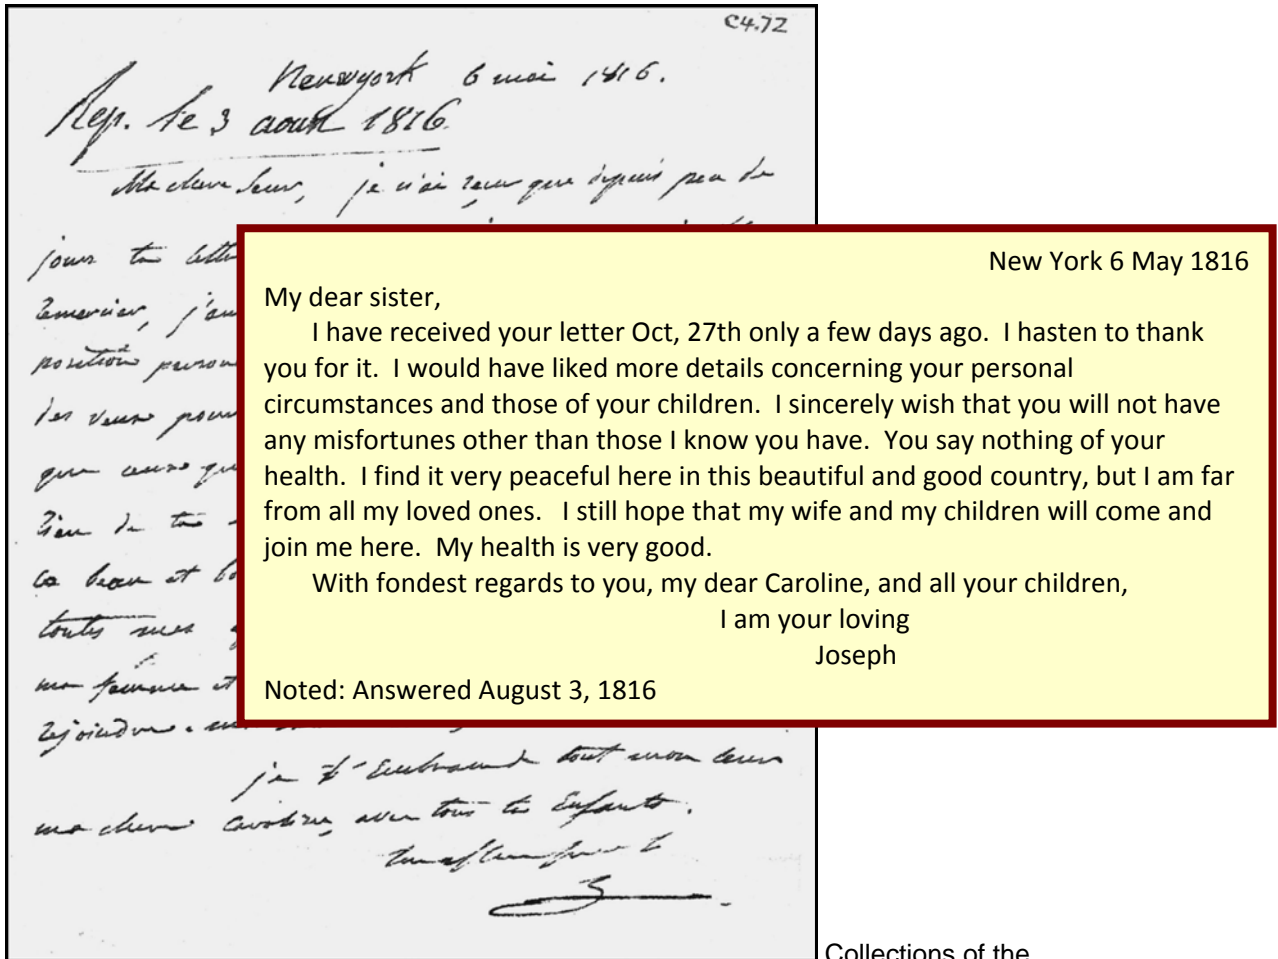 C4.72
Newyork 6 mai 1816.
Rep. le 3 aout 1816.
Ma chere Sœur, je n'ai reçu que depuis peu de
jours ta lettr
remercier, j'au
position person
des vœux pour
que ceux qu
rien de ta
ce beau et bo
toutes mes
ma femme et
rejoindre
je t'Embrasse de tout mon cœur
ma chere Caroline, avec tous tes Enfants.
New York 6 May 1816
My dear sister,
I have received your letter Oct, 27th only a few days ago. I hasten to thank
you for it. I would have liked more details concerning your personal
circumstances and those of your children. I sincerely wish that you will not have
any misfortunes other than those I know you have. You say nothing of your
health. I find it very peaceful here in this beautiful and good country, but I am far
from all my loved ones. I still hope that my wife and my children will come and
join me here. My health is very good.
With fondest regards to you, my dear Caroline, and all your children,
I am your loving
Joseph
Noted: Answered August 3, 1816
Collections of the